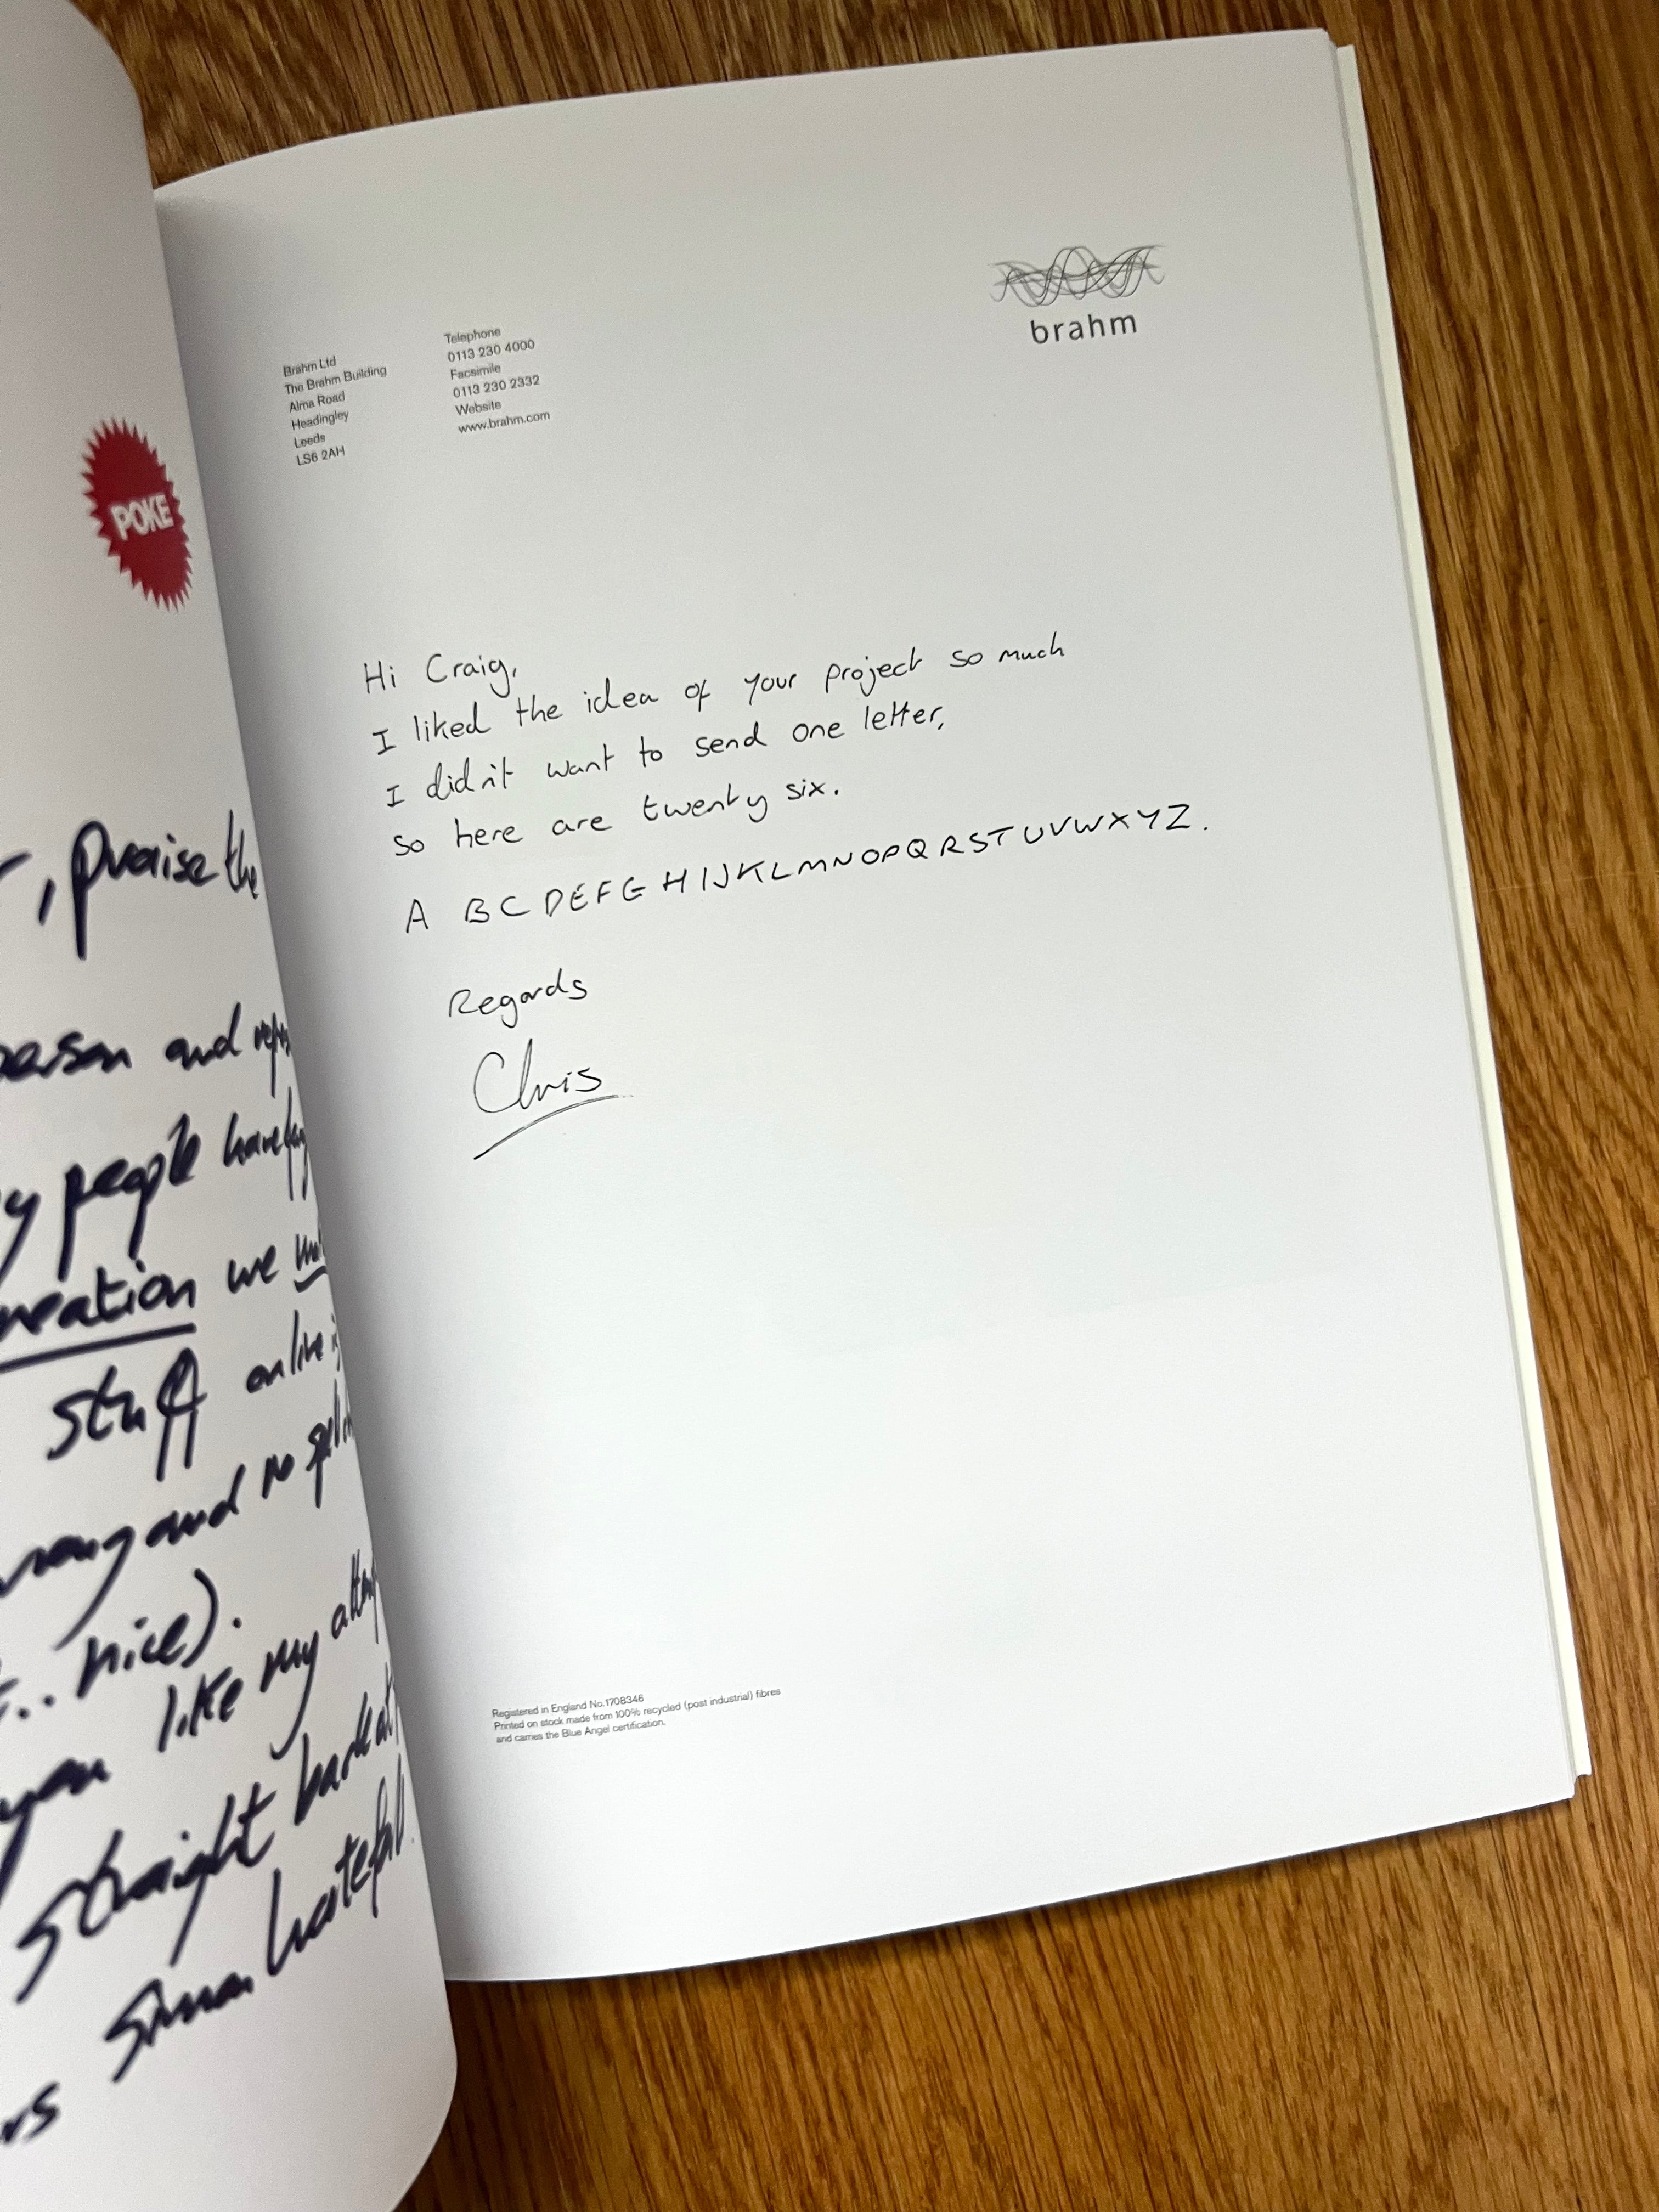 POKE
, praise the
and
people have
we
stuff online
and no
nice).
like my
straight back at
Simon Waterfall.
brahm
Brahm Ltd
The Brahm Building
Alma Road
Headingley
Leeds
LS6 2AH
Telephone
0113 230 4000
Facsimile
0113 230 2332
Website
www.brahm.com
Hi Craig,
I liked the idea of your project so much
I didn't want to send one letter,
so here are twenty six.
A B C D E F G H I J K L M N O P Q R S T U V W X Y Z.
Regards
Chris
Registered in England No.1708346
Printed on stock made from 100% recycled (post industrial) fibres
and carries the Blue Angel certification.